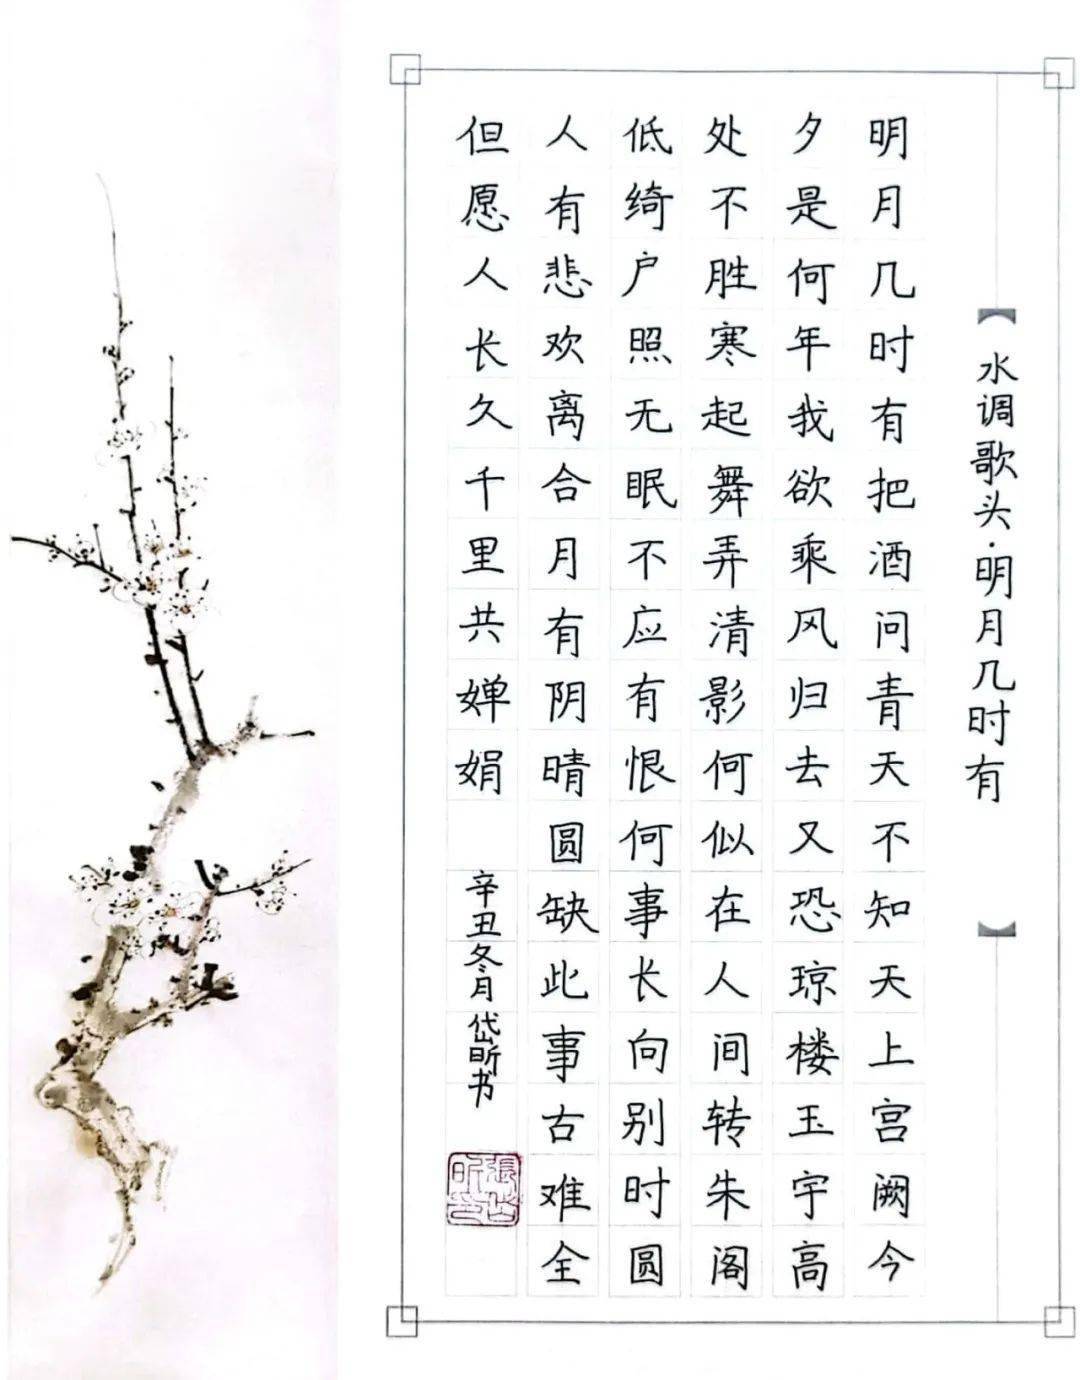 水调歌头·明月几时有
明月几时有把酒问青天不知天上宫阙今
夕是何年我欲乘风归去又恐琼楼玉宇高
处不胜寒起舞弄清影何似在人间转朱阁
低绮户照无眠不应有恨何事长向别时圆
人有悲欢离合月有阴晴圆缺此事古难全
但愿人长久千里共婵娟
辛丑冬月 岱昕书
張岱昕印